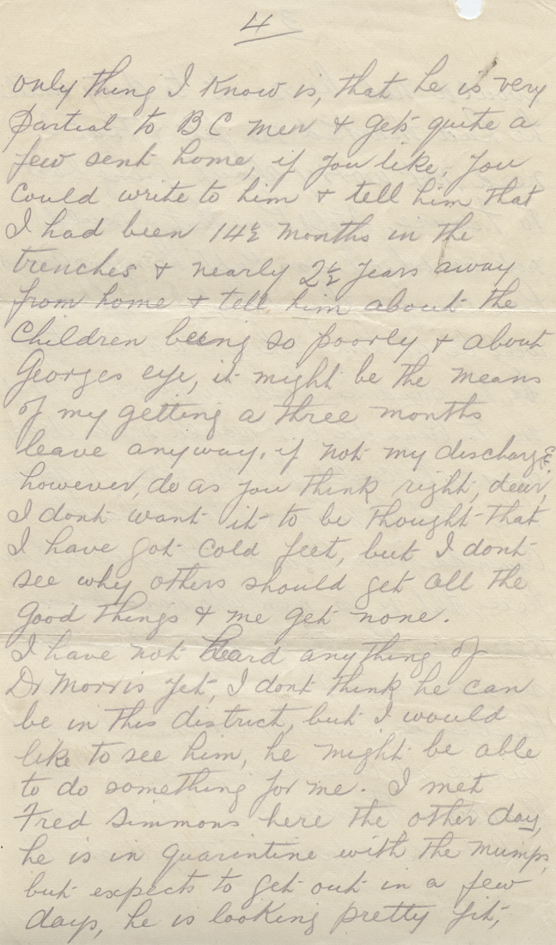 4
only thing I know is, that he is very
partial to BC men & gets quite a
few sent home, if you like, you
could write to him & tell him that
I had been 14½ months in the
trenches & nearly 2½ years away
from home & tell him about the
children being so poorly & about
Georges eye, it might be the means
of my getting a three months
leave anyway, if not my discharge,
however, do as you think right, dear,
I dont want it to be thought that
I have got cold feet, but I dont
see why others should get all the
good things & me get none.
I have not heard anything of
Dr Morris yet, I dont think he can
be in this district, but I would
like to see him, he might be able
to do something for me. I met
Fred Simmons here the other day,
he is in quarintine with the mumps,
but expects to get out in a few
days, he is looking pretty fit,